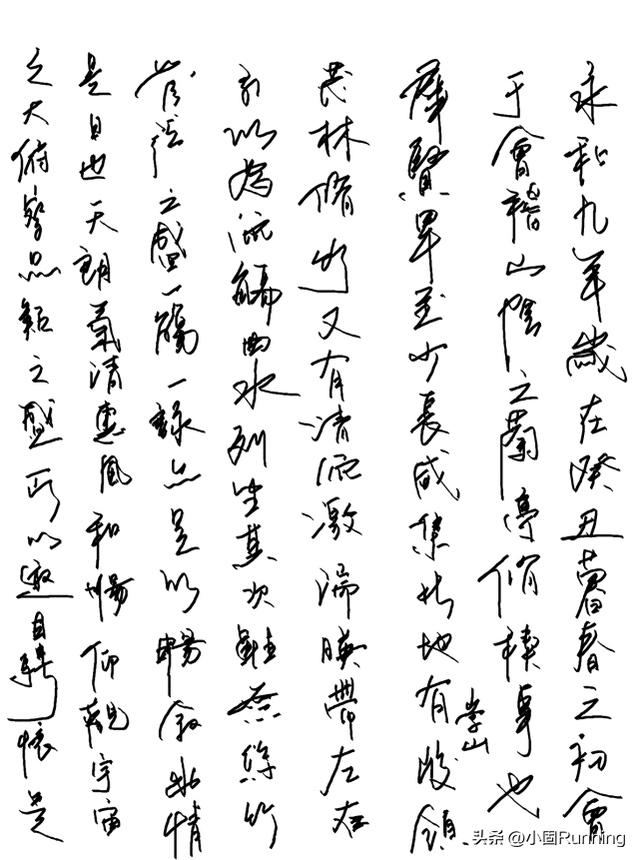 永和九年歲在癸丑暮春之初會
于會稽山陰之蘭亭脩禊事也
群賢畢至少長咸集此地有崇山峻領
茂林脩竹又有清流激湍暎帶左右
引以為流觴曲水列坐其次雖無絲竹
管弦之盛一觴一詠亦足以暢敘幽情
是日也天朗氣清惠風和暢仰觀宇宙
之大俯察品類之盛所以遊目騁懷足
头条 @小固Running